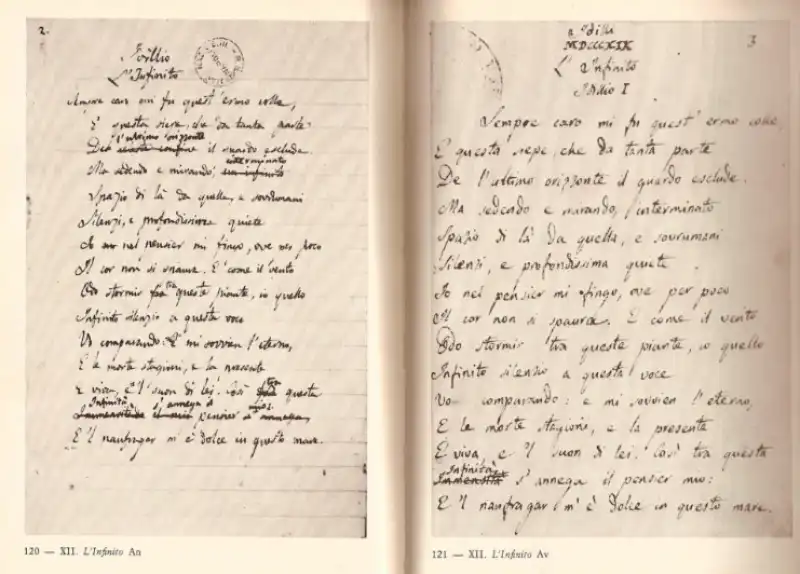 2.
Idillio
L'Infinito
Sempre caro mi fu quest'ermo colle,
E questa siepe, che da tanta parte
l'ultimo orizzonte
De confine il guardo esclude.
interminato
Ma sedendo e mirando, un infinito
Spazio di là da quella, e sovrumani
Silenzi, e profondissima quiete
Io nel pensier mi fingo, ove per poco
Il cor non si spaura. E come il vento
Odo stormir tra queste piante, io quello
Infinito silenzio a questa voce
Vo comparando: E mi sovvien l'eterno,
E le morte stagioni, e la presente
E viva, e 'l suon di lei. Così tra questa
Infinità s'annega il mio
Immensitade il mio pensier s'annega,
E 'l naufragar m'è dolce in questo mare.
120 — XII. L'Infinito An
3
Idilli
MDCCCXIX
L'Infinito
Idillio I
Sempre caro mi fu quest'ermo colle
E questa siepe, che da tanta parte
De l'ultimo orizzonte il guardo esclude.
Ma sedendo e mirando, interminato
Spazio di là da quella, e sovrumani
Silenzi, e profondissima quiete
Io nel pensier mi fingo, ove per poco
Il cor non si spaura. E come il vento
Odo stormir tra queste piante, io quello
Infinito silenzio a questa voce
Vo comparando: e mi sovvien l'eterno,
E le morte stagioni, e la presente
E viva, e 'l suon di lei. Così tra questa
Infinità
Immensità s'annega il pensier mio:
E 'l naufragar m'è dolce in questo mare.
121 — XII. L'Infinito Av